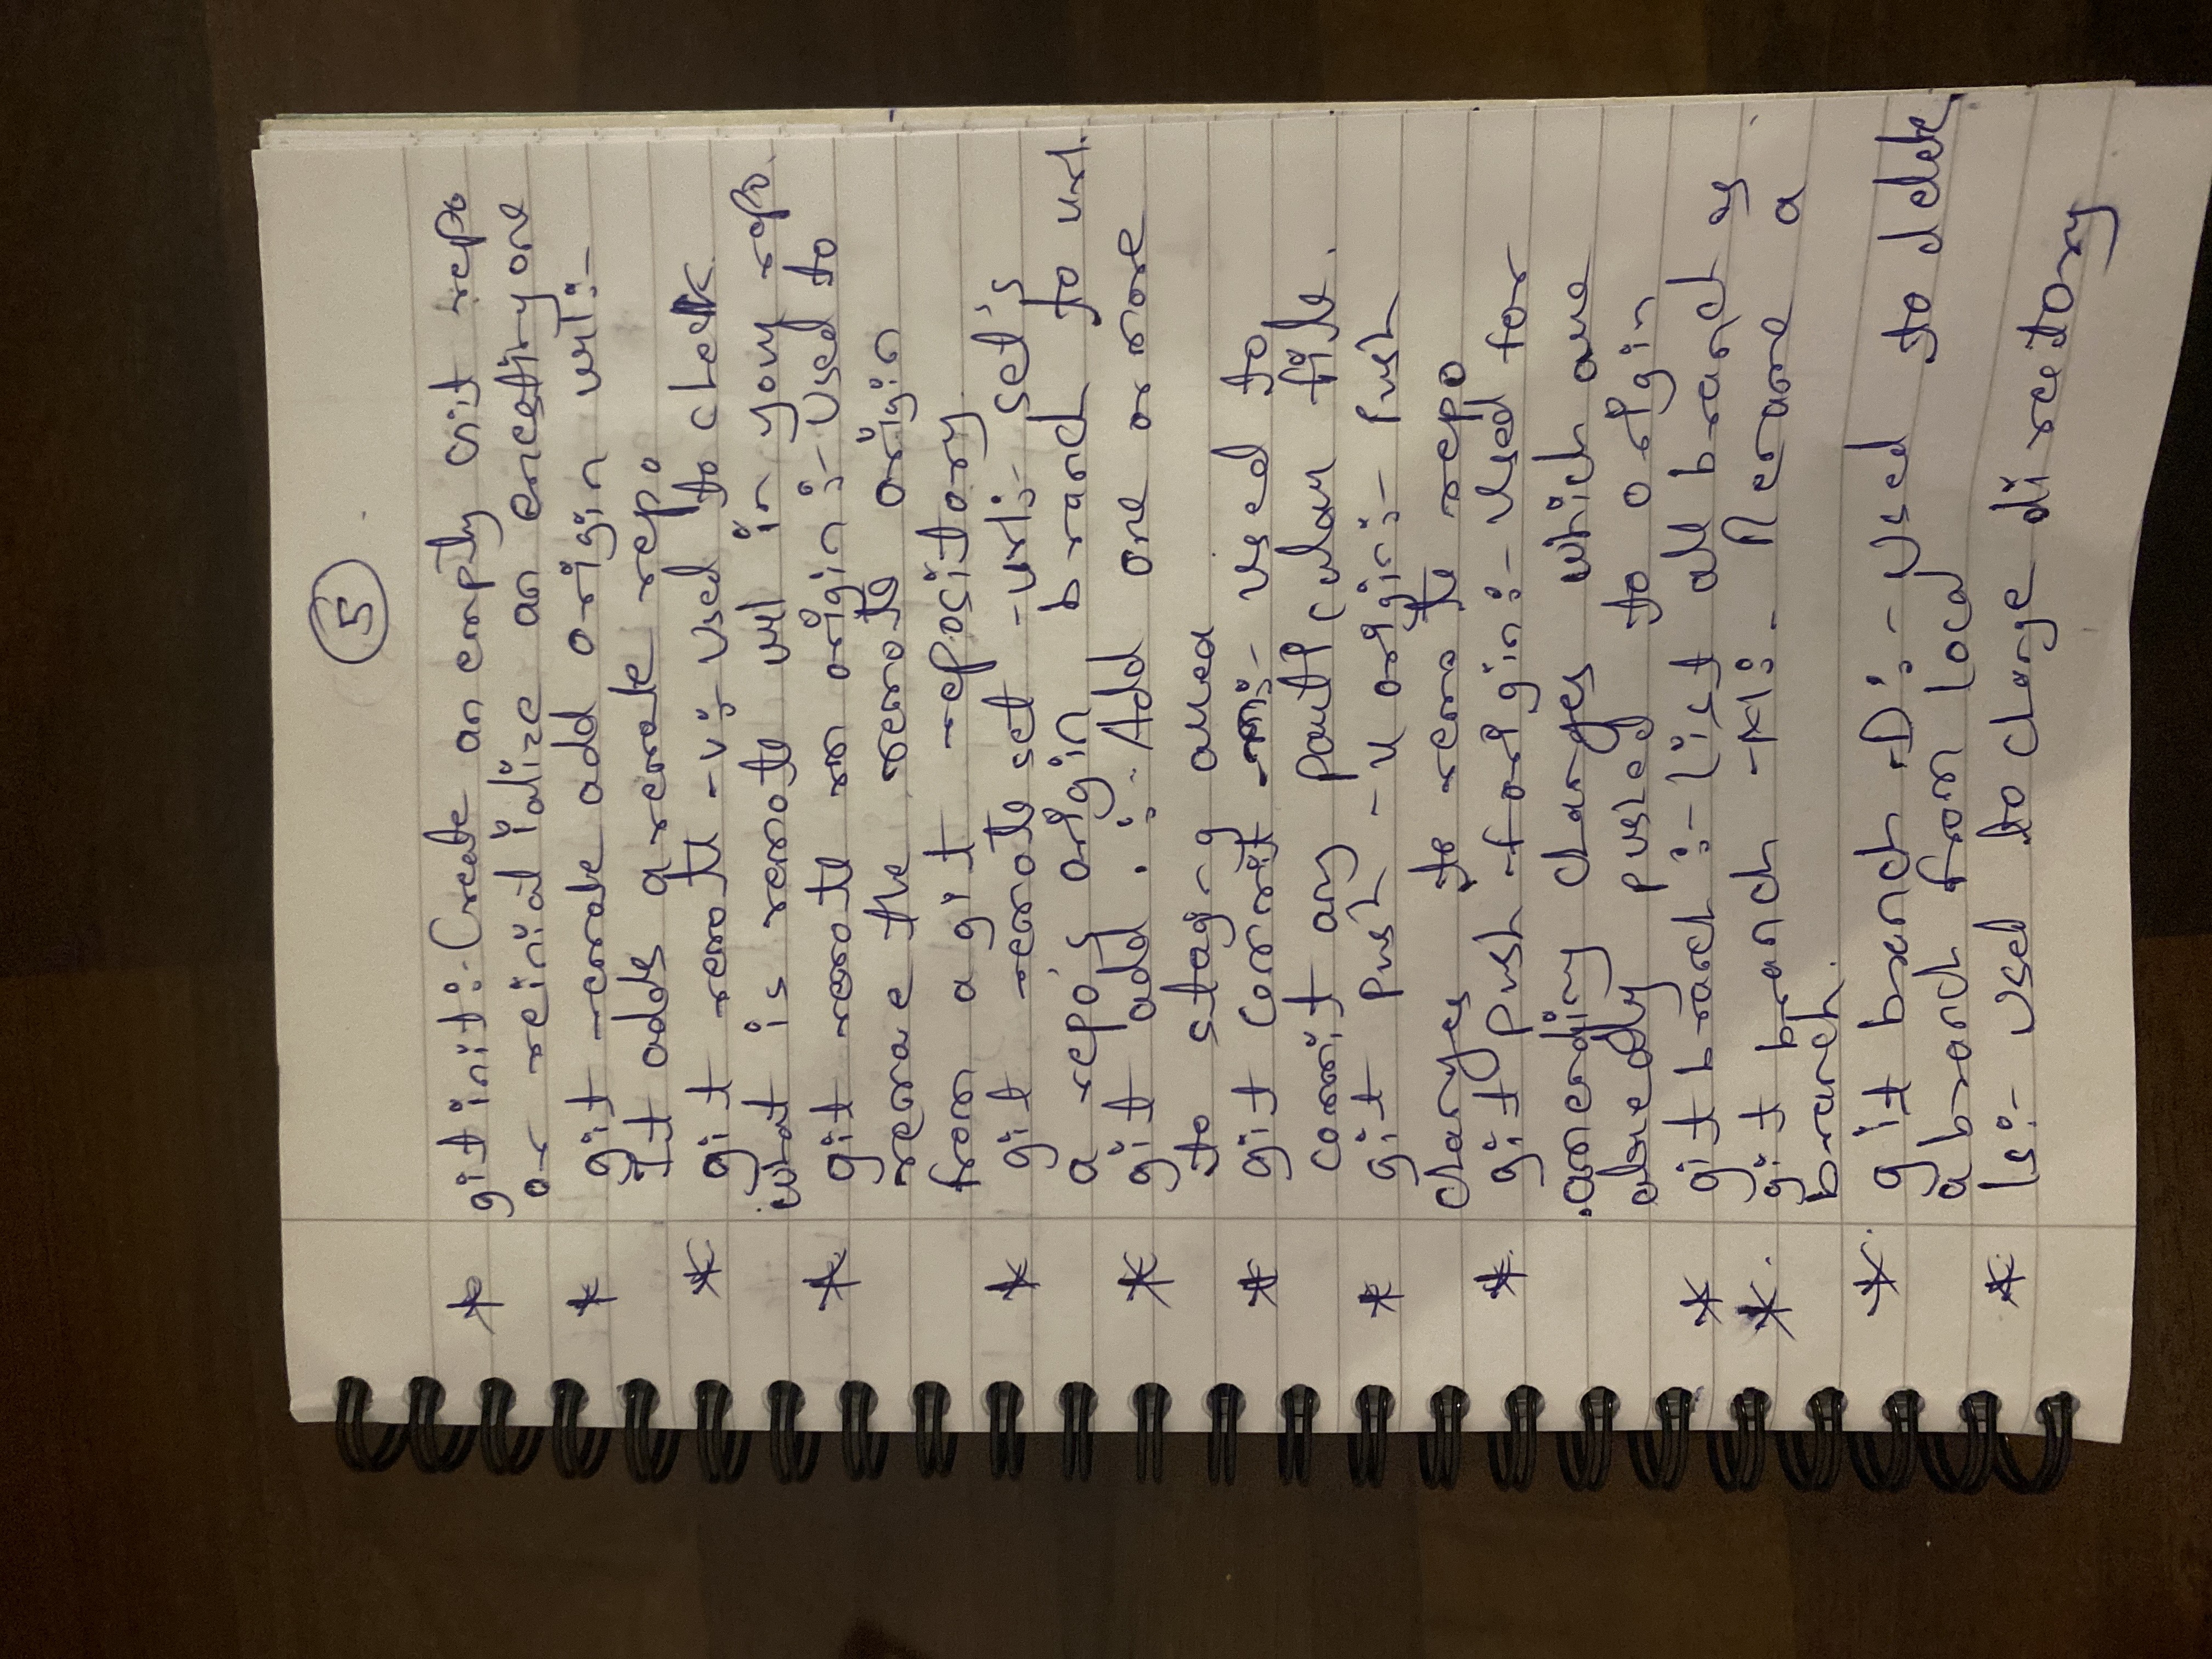 5
* git init:- Create an empty Git repo
or reiniatialize an encestiny one
* git remote add origin url:-
It adds a remote repo
* git remote -v:- Used to check
what is remote url in your repo.
* git remote rm origin:- Used to
remove the remote origin
from a git repository
* git remote set -url:- set's
a repo's origin branch to url.
* git add . :- Add one or more
to staging area
* git commit -m:- Used to
commit any particular file.
* git push -u origin:- Push
changes to remote repo
* git push -f origin:- Used for
amending changes which are
already pushed to origin
* git branch :- List all branches
* git branch -M:- Rename a
branch.
* git branch -D:- Used to delete
a branch from local
* ls:- Used to change directory